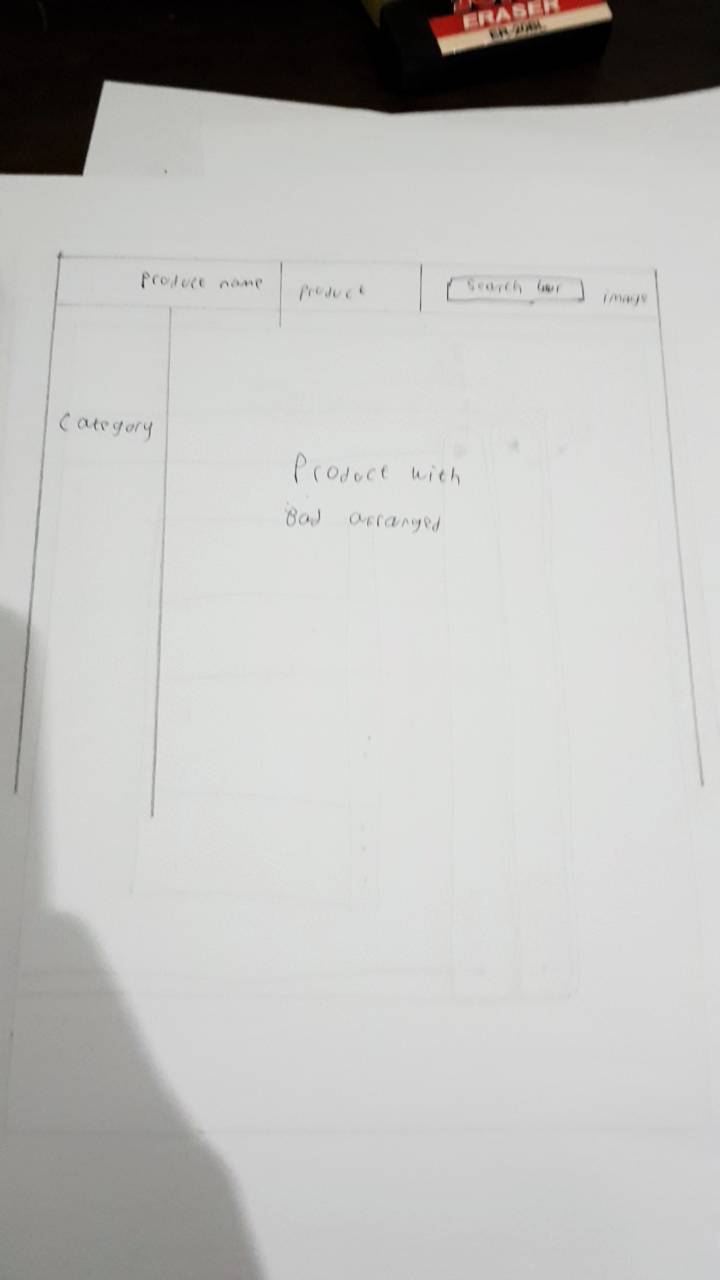 ERASER
ER-20BL
Product name
Product
Search bar
image
Category
Product with
Bad arranged